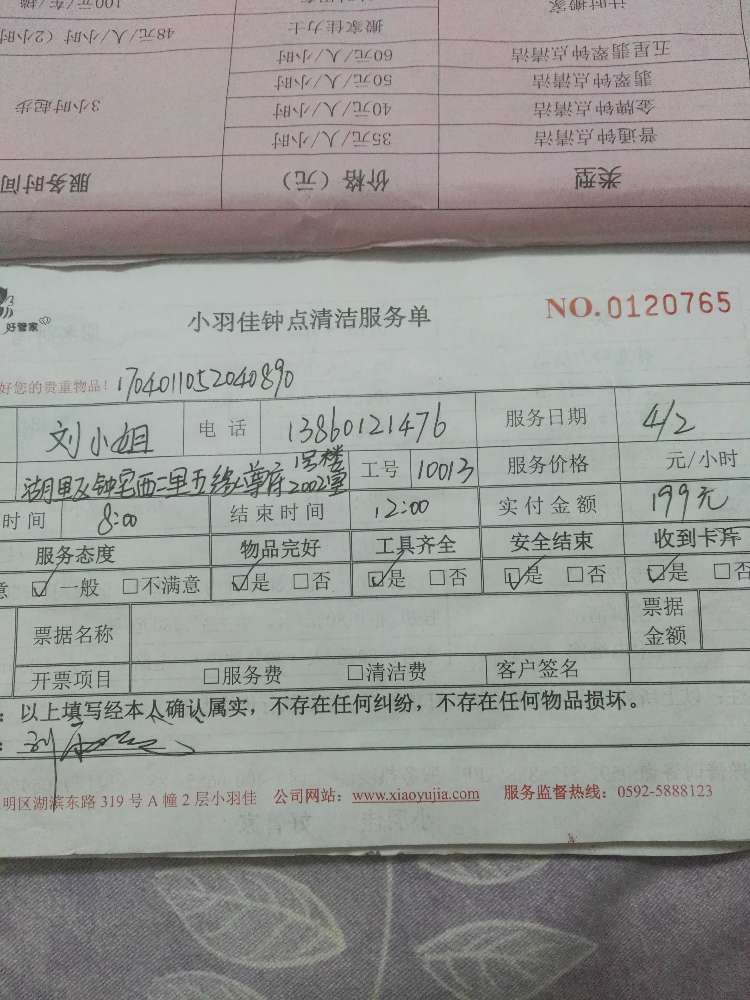 100元/车/趟
计时搬家
48元/人/小时（2小时
搬家佳力士
五星翡翠钟点清洁
60元/人/小时
翡翠钟点清洁
50元/人/小时
3小时起步
金牌钟点清洁
40元/人/小时
普通钟点清洁
35元/人/小时
类型
价格（元）
服务时间
好管家
小羽佳钟点清洁服务单
NO.0120765
好您的贵重物品！1704011052040890
刘小姐 电话 13860121476 服务日期 4/2
湖里区钟宅西二里五缘尊府1号楼2002室 工号 10013 服务价格 元/小时
时间 8:00 结束时间 12:00 实付金额 199元
服务态度 物品完好 工具齐全 安全结束 收到卡片
意 ☑一般 □不满意 ☑是 □否 ☑是 □否 ☑是 □否 ☑是 □否
票据名称 票据金额
开票项目 □服务费 □清洁费 客户签名
：以上填写经本人确认属实，不存在任何纠纷，不存在任何物品损坏。
明区湖滨东路 319 号 A 幢 2 层小羽佳 公司网站：www.xiaoyujia.com 服务监督热线：0592-5888123